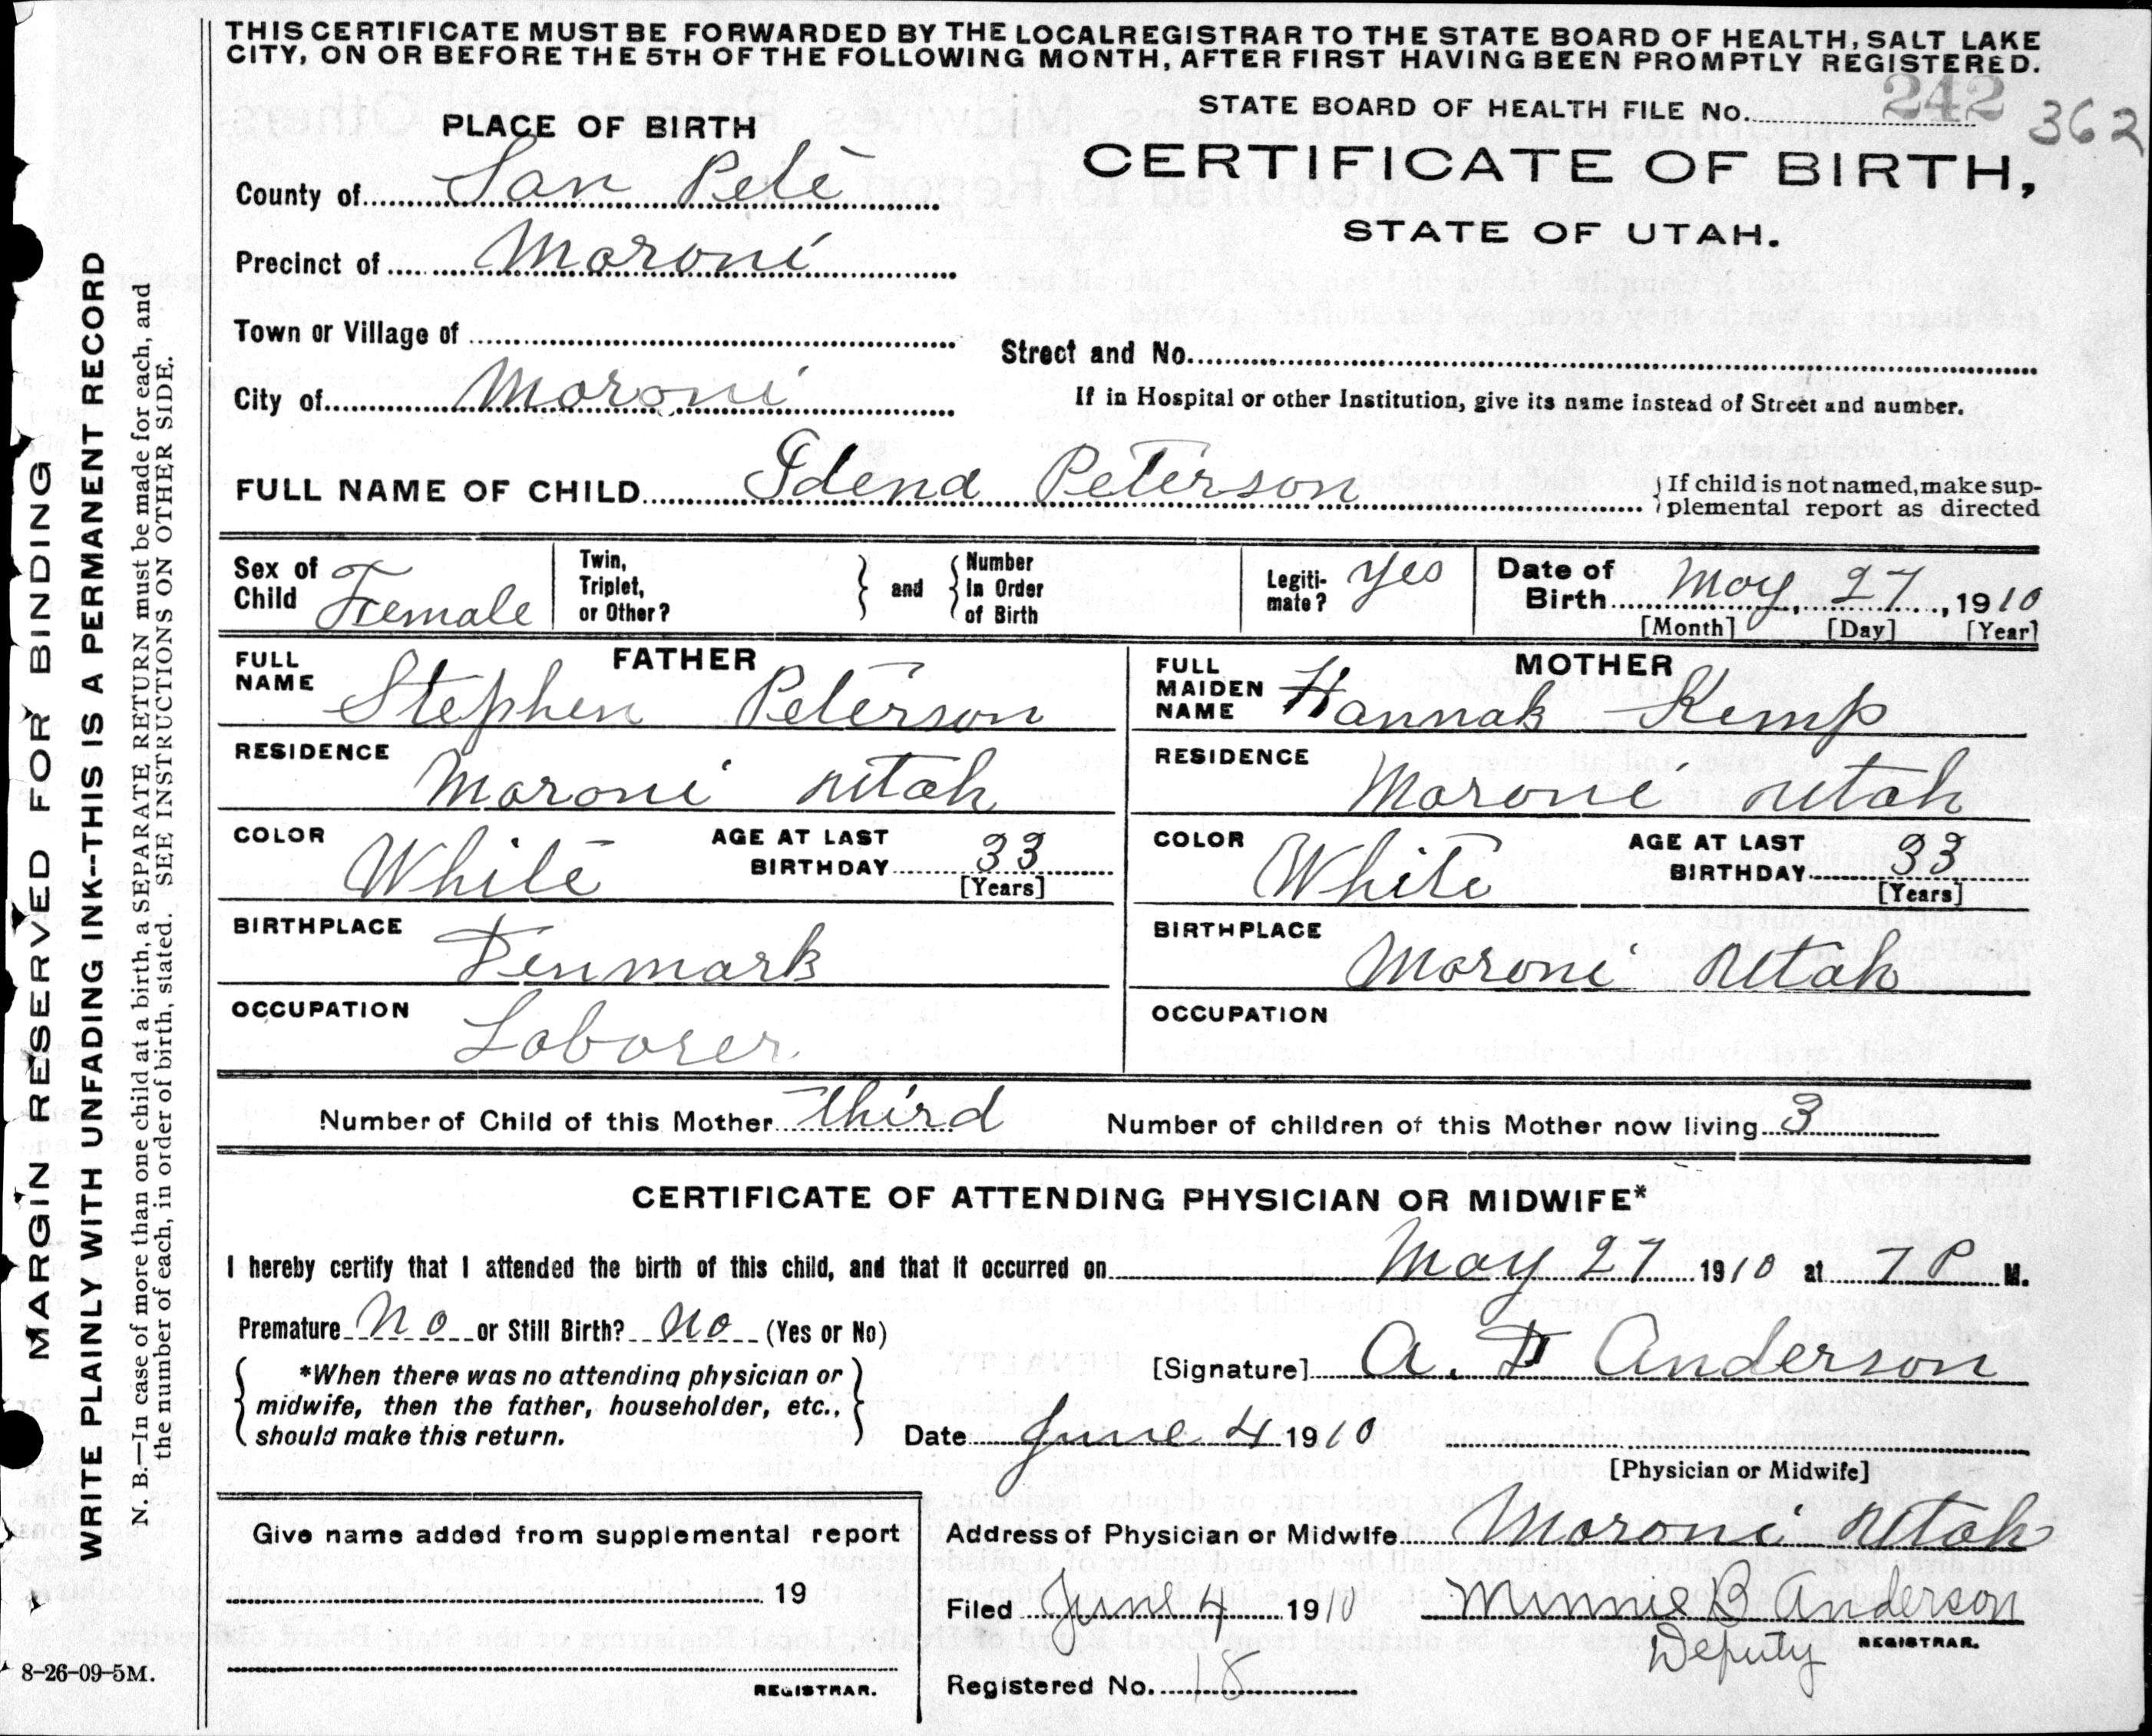 THIS CERTIFICATE MUST BE FORWARDED BY THE LOCAL REGISTRAR TO THE STATE BOARD OF HEALTH, SALT LAKE
CITY, ON OR BEFORE THE 5TH OF THE FOLLOWING MONTH, AFTER FIRST HAVING BEEN PROMPTLY REGISTERED.
STATE BOARD OF HEALTH FILE No. 242 362
PLACE OF BIRTH
CERTIFICATE OF BIRTH,
STATE OF UTAH.
County of San Pete
Precinct of Moroni
Town or Village of
Street and No.
City of Moroni
If in Hospital or other Institution, give its name instead of Street and number.
FULL NAME OF CHILD Idena Peterson
If child is not named, make sup-
plemental report as directed
Sex of Child Female
Twin, Triplet, or Other? and Number In Order of Birth
Legiti- mate? yes
Date of Birth May, 27, 1910
[Month] [Day] [Year]
FATHER
FULL NAME Stephen Peterson
RESIDENCE Moroni Utah
COLOR White AGE AT LAST BIRTHDAY 33 [Years]
BIRTHPLACE Denmark
OCCUPATION Laborer
MOTHER
FULL MAIDEN NAME Hannah Kemp
RESIDENCE Moroni Utah
COLOR White AGE AT LAST BIRTHDAY 33 [Years]
BIRTHPLACE Moroni Utah
OCCUPATION
Number of Child of this Mother third Number of children of this Mother now living 3
CERTIFICATE OF ATTENDING PHYSICIAN OR MIDWIFE*
I hereby certify that I attended the birth of this child, and that it occurred on May 27 1910 at 7 P M.
Premature No or Still Birth? No (Yes or No)
*When there was no attending physician or
midwife, then the father, householder, etc.,
should make this return.
[Signature] A. D Anderson
Date June 4 1910
[Physician or Midwife]
Give name added from supplemental report
19
REGISTRAR.
Address of Physician or Midwife Moroni Utah
Filed June 4 1910 Minnie B Anderson
Deputy REGISTRAR.
Registered No. 18
8-26-09-5M.
MARGIN RESERVED FOR BINDING
WRITE PLAINLY WITH UNFADING INK--THIS IS A PERMANENT RECORD
N. B.—In case of more than one child at a birth, a SEPARATE RETURN must be made for each, and
the number of each, in order of birth, stated. SEE INSTRUCTIONS ON OTHER SIDE.